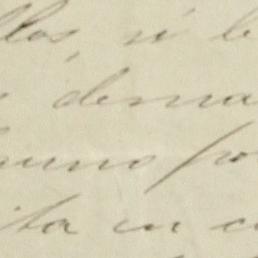 llos, ni le
demа
uno po
ita en c